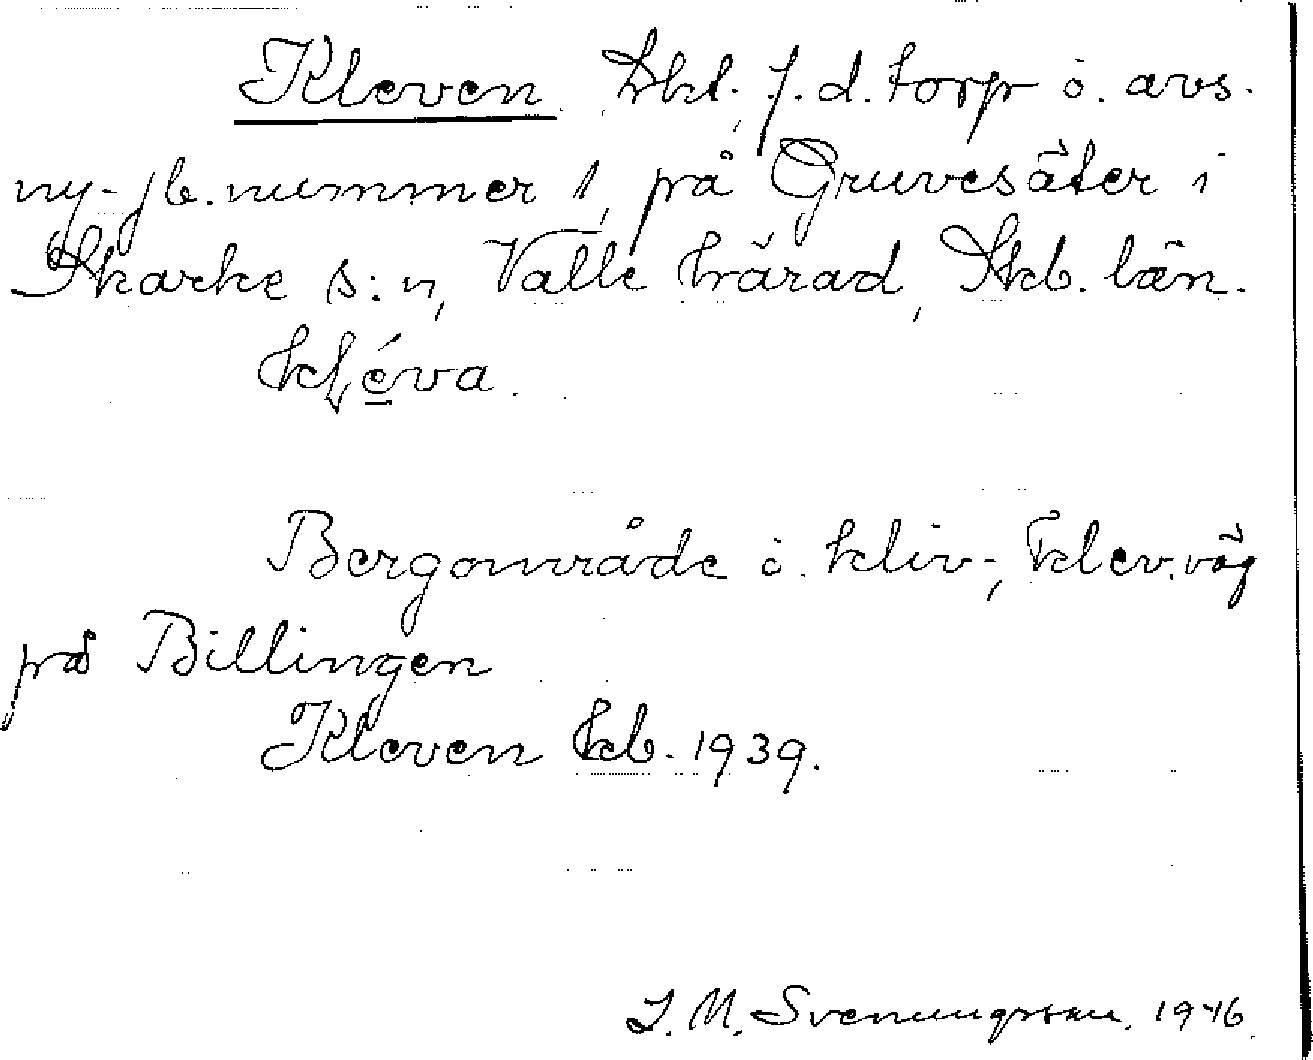 Kleven, bkt. f.d. torp o. avs.
ny-jb. nummer 1, på Gruvesäter i
Skarke s:n, Valle härad, Skb. län.
kļéva.
Bergområde o. kliv-, klev.väg
på Billingen
Kleven kb. 1939.
J. M. Svenungsson. 1946.